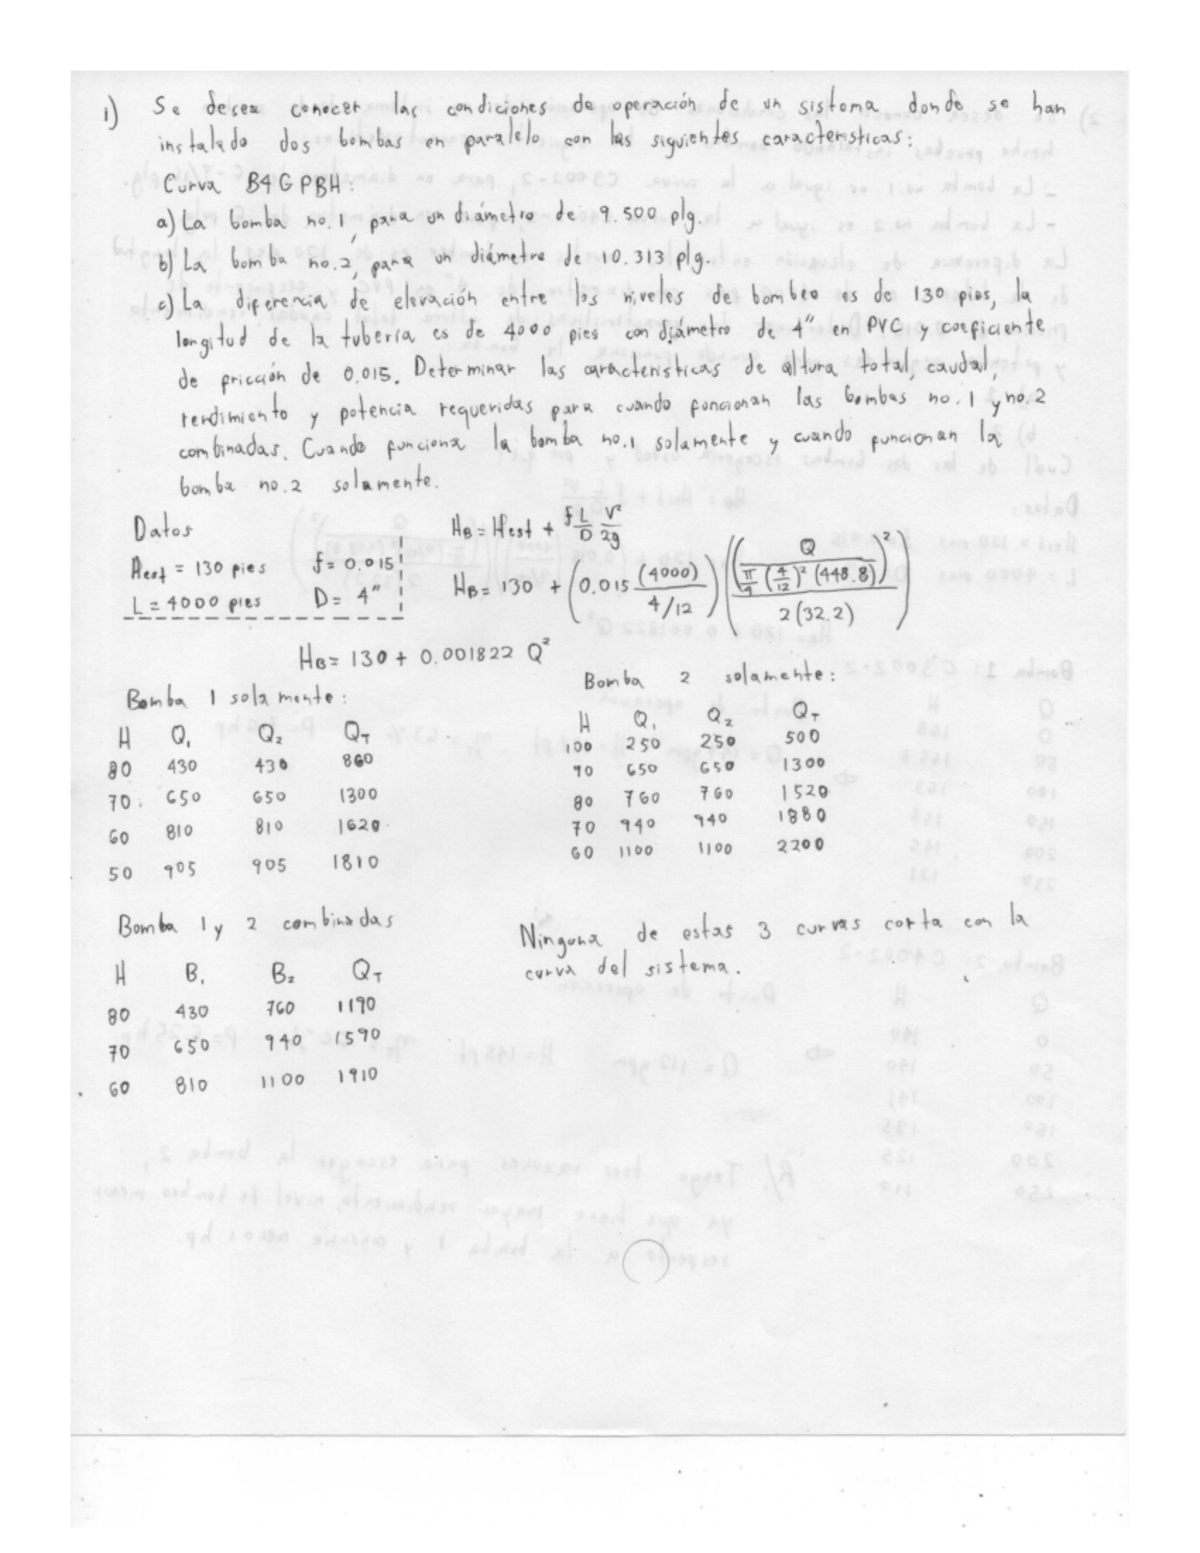 1) Se desea conocer las condiciones de operación de un sistema donde se han
instalado dos bombas en paralelo con las siguientes características:
Curva B4GPBH:
a) La bomba no.1, para un diámetro de 9.500 plg.
b) La bomba no.2, para un diámetro de 10.313 plg.
c) La diferencia de elevación entre los niveles de bombeo es de 130 pies, la
longitud de la tubería es de 4000 pies con diámetro de 4" en PVC y coeficiente
de fricción de 0.015. Determinar las características de altura total, caudal,
rendimiento y potencia requeridas para cuando funcionan las bombas no.1 y no.2
combinadas. Cuando funciona la bomba no.1 solamente y cuando funcionan la
bomba no.2 solamente.
Datos
Hest = 130 pies f = 0.015
L = 4000 pies D = 4"
HB = Hest + f L/D V²/2g
HB = 130 + (0.015 (4000)/(4/12)) ((Q/(π/4 (4/12)² (448.8)))²/2(32.2))
HB = 130 + 0.001822 Q²
Bomba 1 solamente:
H Q₁ Q₂ QT
80 430 430 860
70 650 650 1300
60 810 810 1620
50 905 905 1810
Bomba 2 solamente:
H Q₁ Q₂ QT
100 250 250 500
90 650 650 1300
80 760 760 1520
70 940 940 1880
60 1100 1100 2200
Bomba 1 y 2 combinadas
H B₁ B₂ QT
80 430 760 1190
70 650 940 1590
60 810 1100 1910
Ninguna de estas 3 curvas corta con la
curva del sistema.